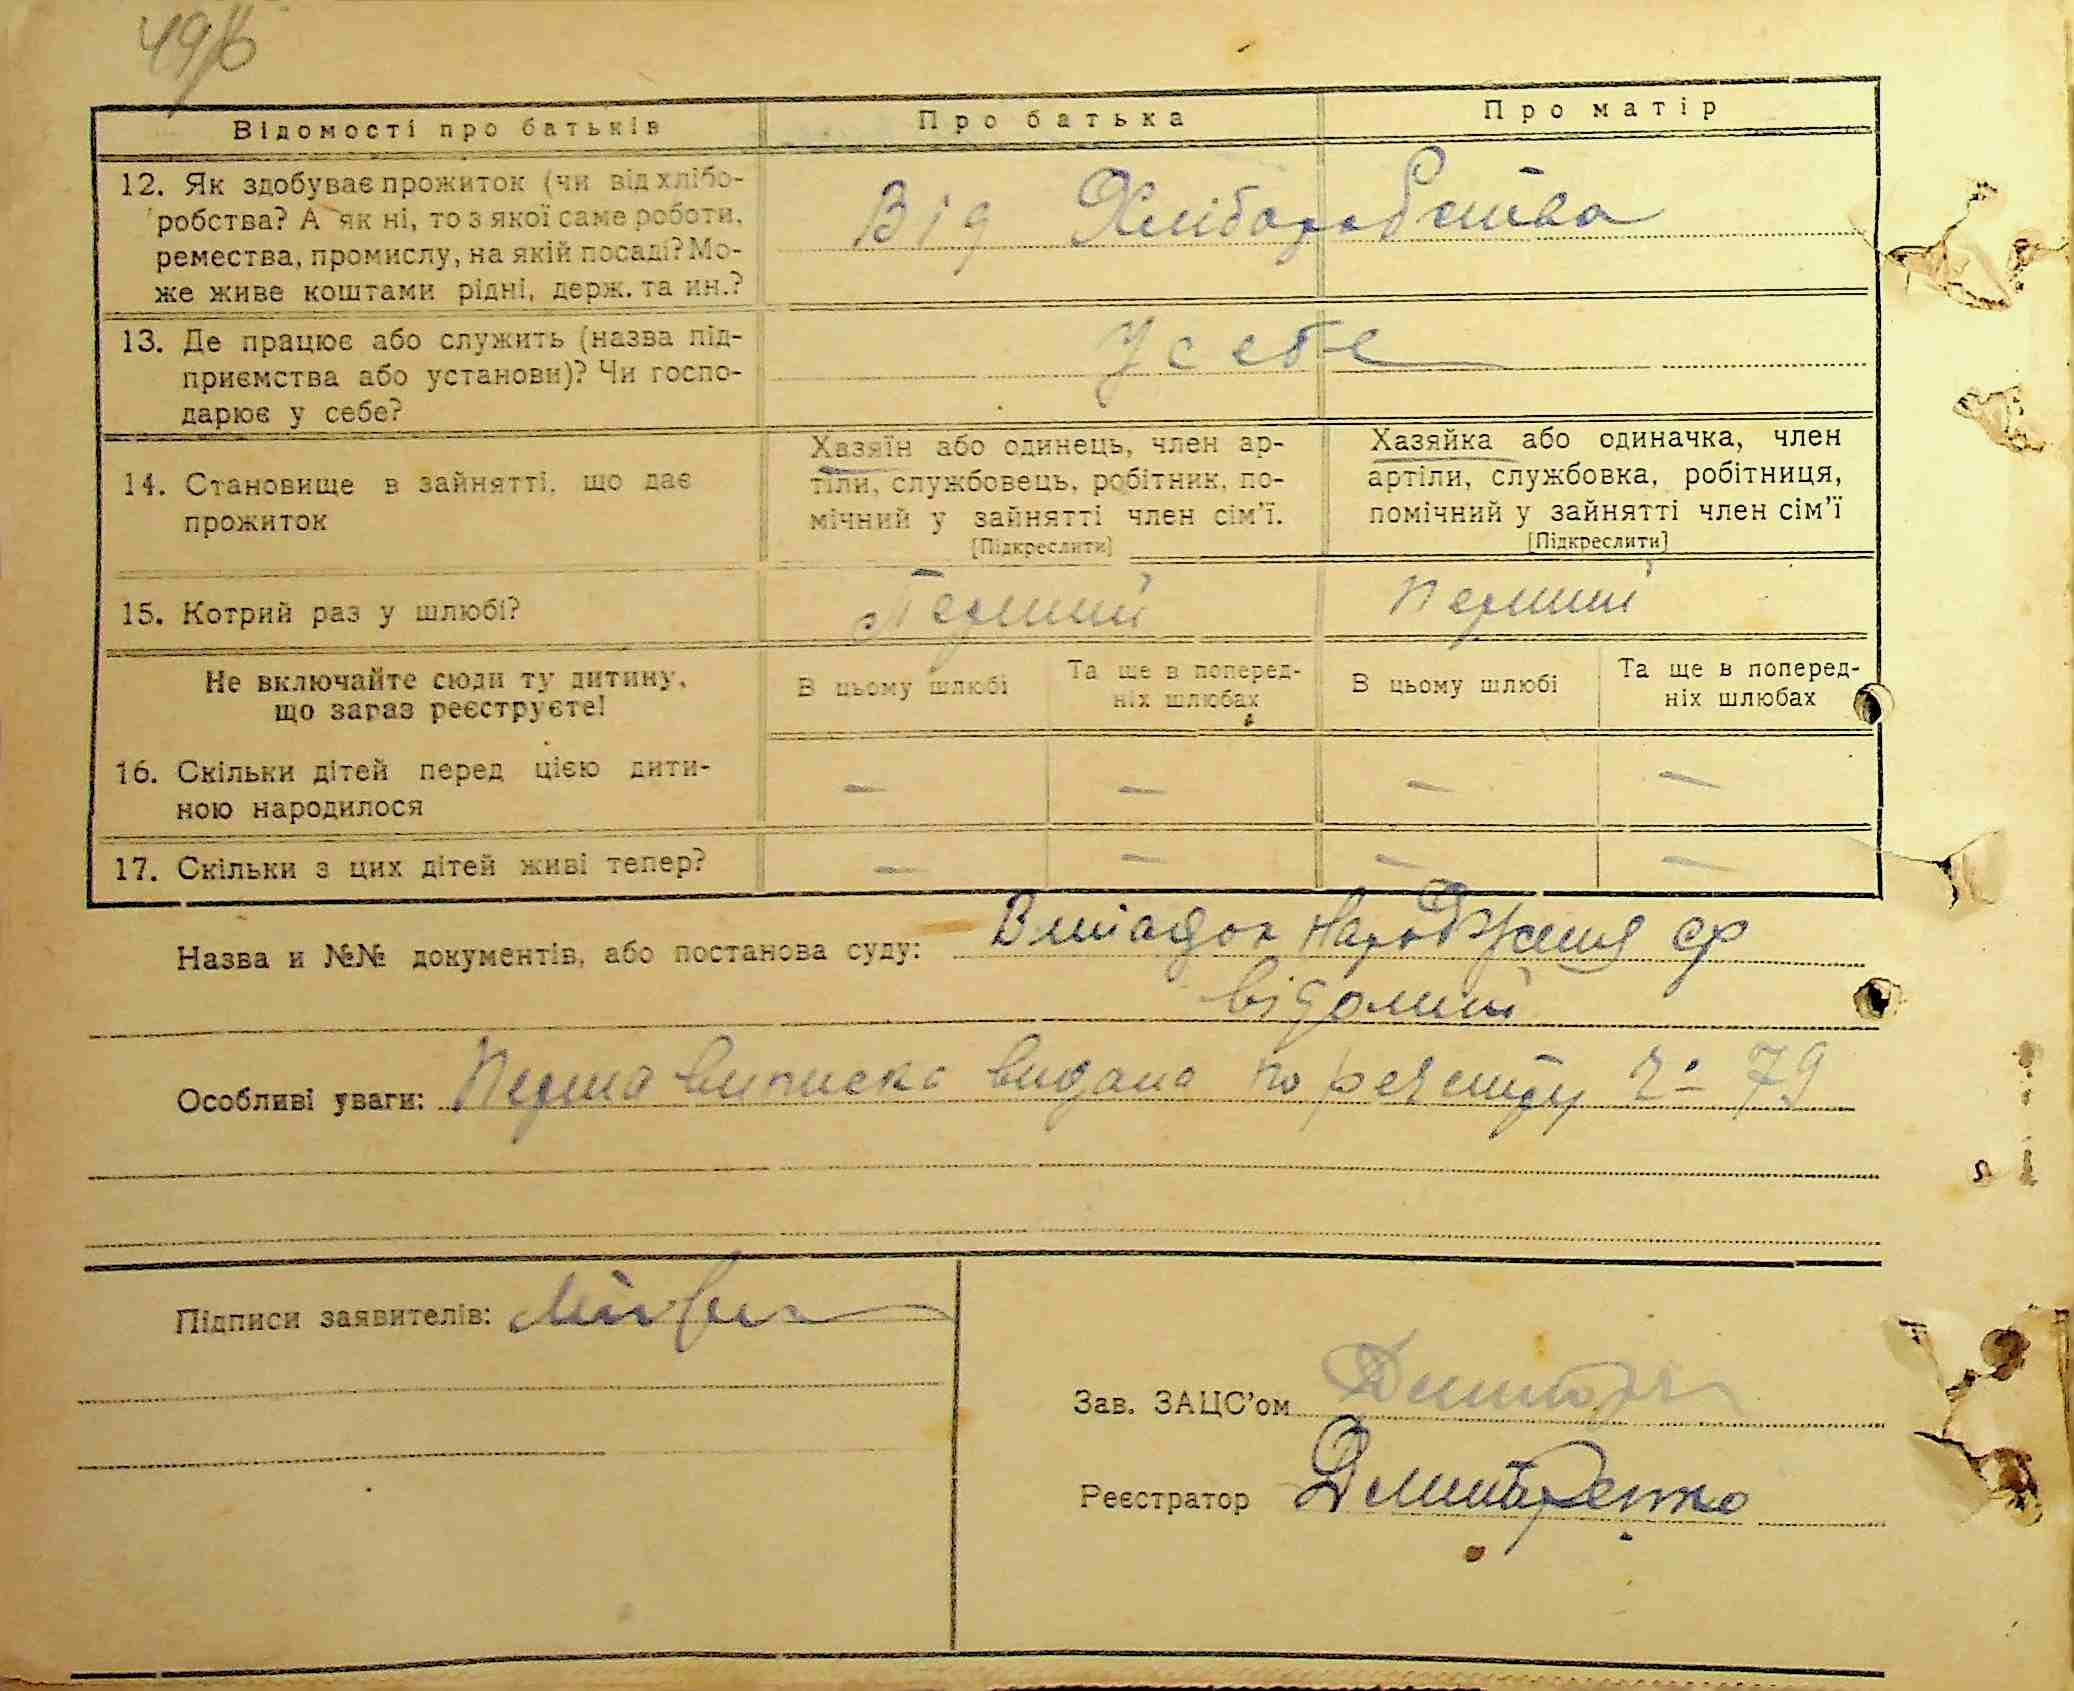 Відомості про батьків
Про батька
Про матір
12. Як здобуває прожиток (чи від хлібо-
робства? А як ні, то з якої саме роботи,
ремества, промислу, на якій посаді? Мо-
же живе коштами рідні, держ. та ин.?
Від Хліборобства
13. Де працює або служить (назва під-
приємства або установи)? Чи госпо-
дарює у себе?
У себе
14. Становище в зайнятті, що дає
прожиток
Хазяїн або одинець, член ар-
тіли, службовець, робітник, по-
мічний у зайнятті член сім'ї.
[Підкреслити]
Хазяйка або одиначка, член
артіли, службовка, робітниця,
помічний у зайнятті член сім'ї
[Підкреслити]
15. Котрий раз у шлюбі?
Перший
перший
Не включайте сюди ту дитину,
що зараз реєструєте!
В цьому шлюбі
Та ще в поперед-
ніх шлюбах
В цьому шлюбі
Та ще в поперед-
ніх шлюбах
16. Скільки дітей перед цією дити-
ною народилося
— — — —
17. Скільки з цих дітей живі тепер?
— — — —
Назва и №№ документів, або постанова суду: народження
відомий
Особливі уваги: Перша виписка видана по реєстру 79
Підписи заявителів:
Зав. ЗАЦС'ом
Реєстратор Дмитренко